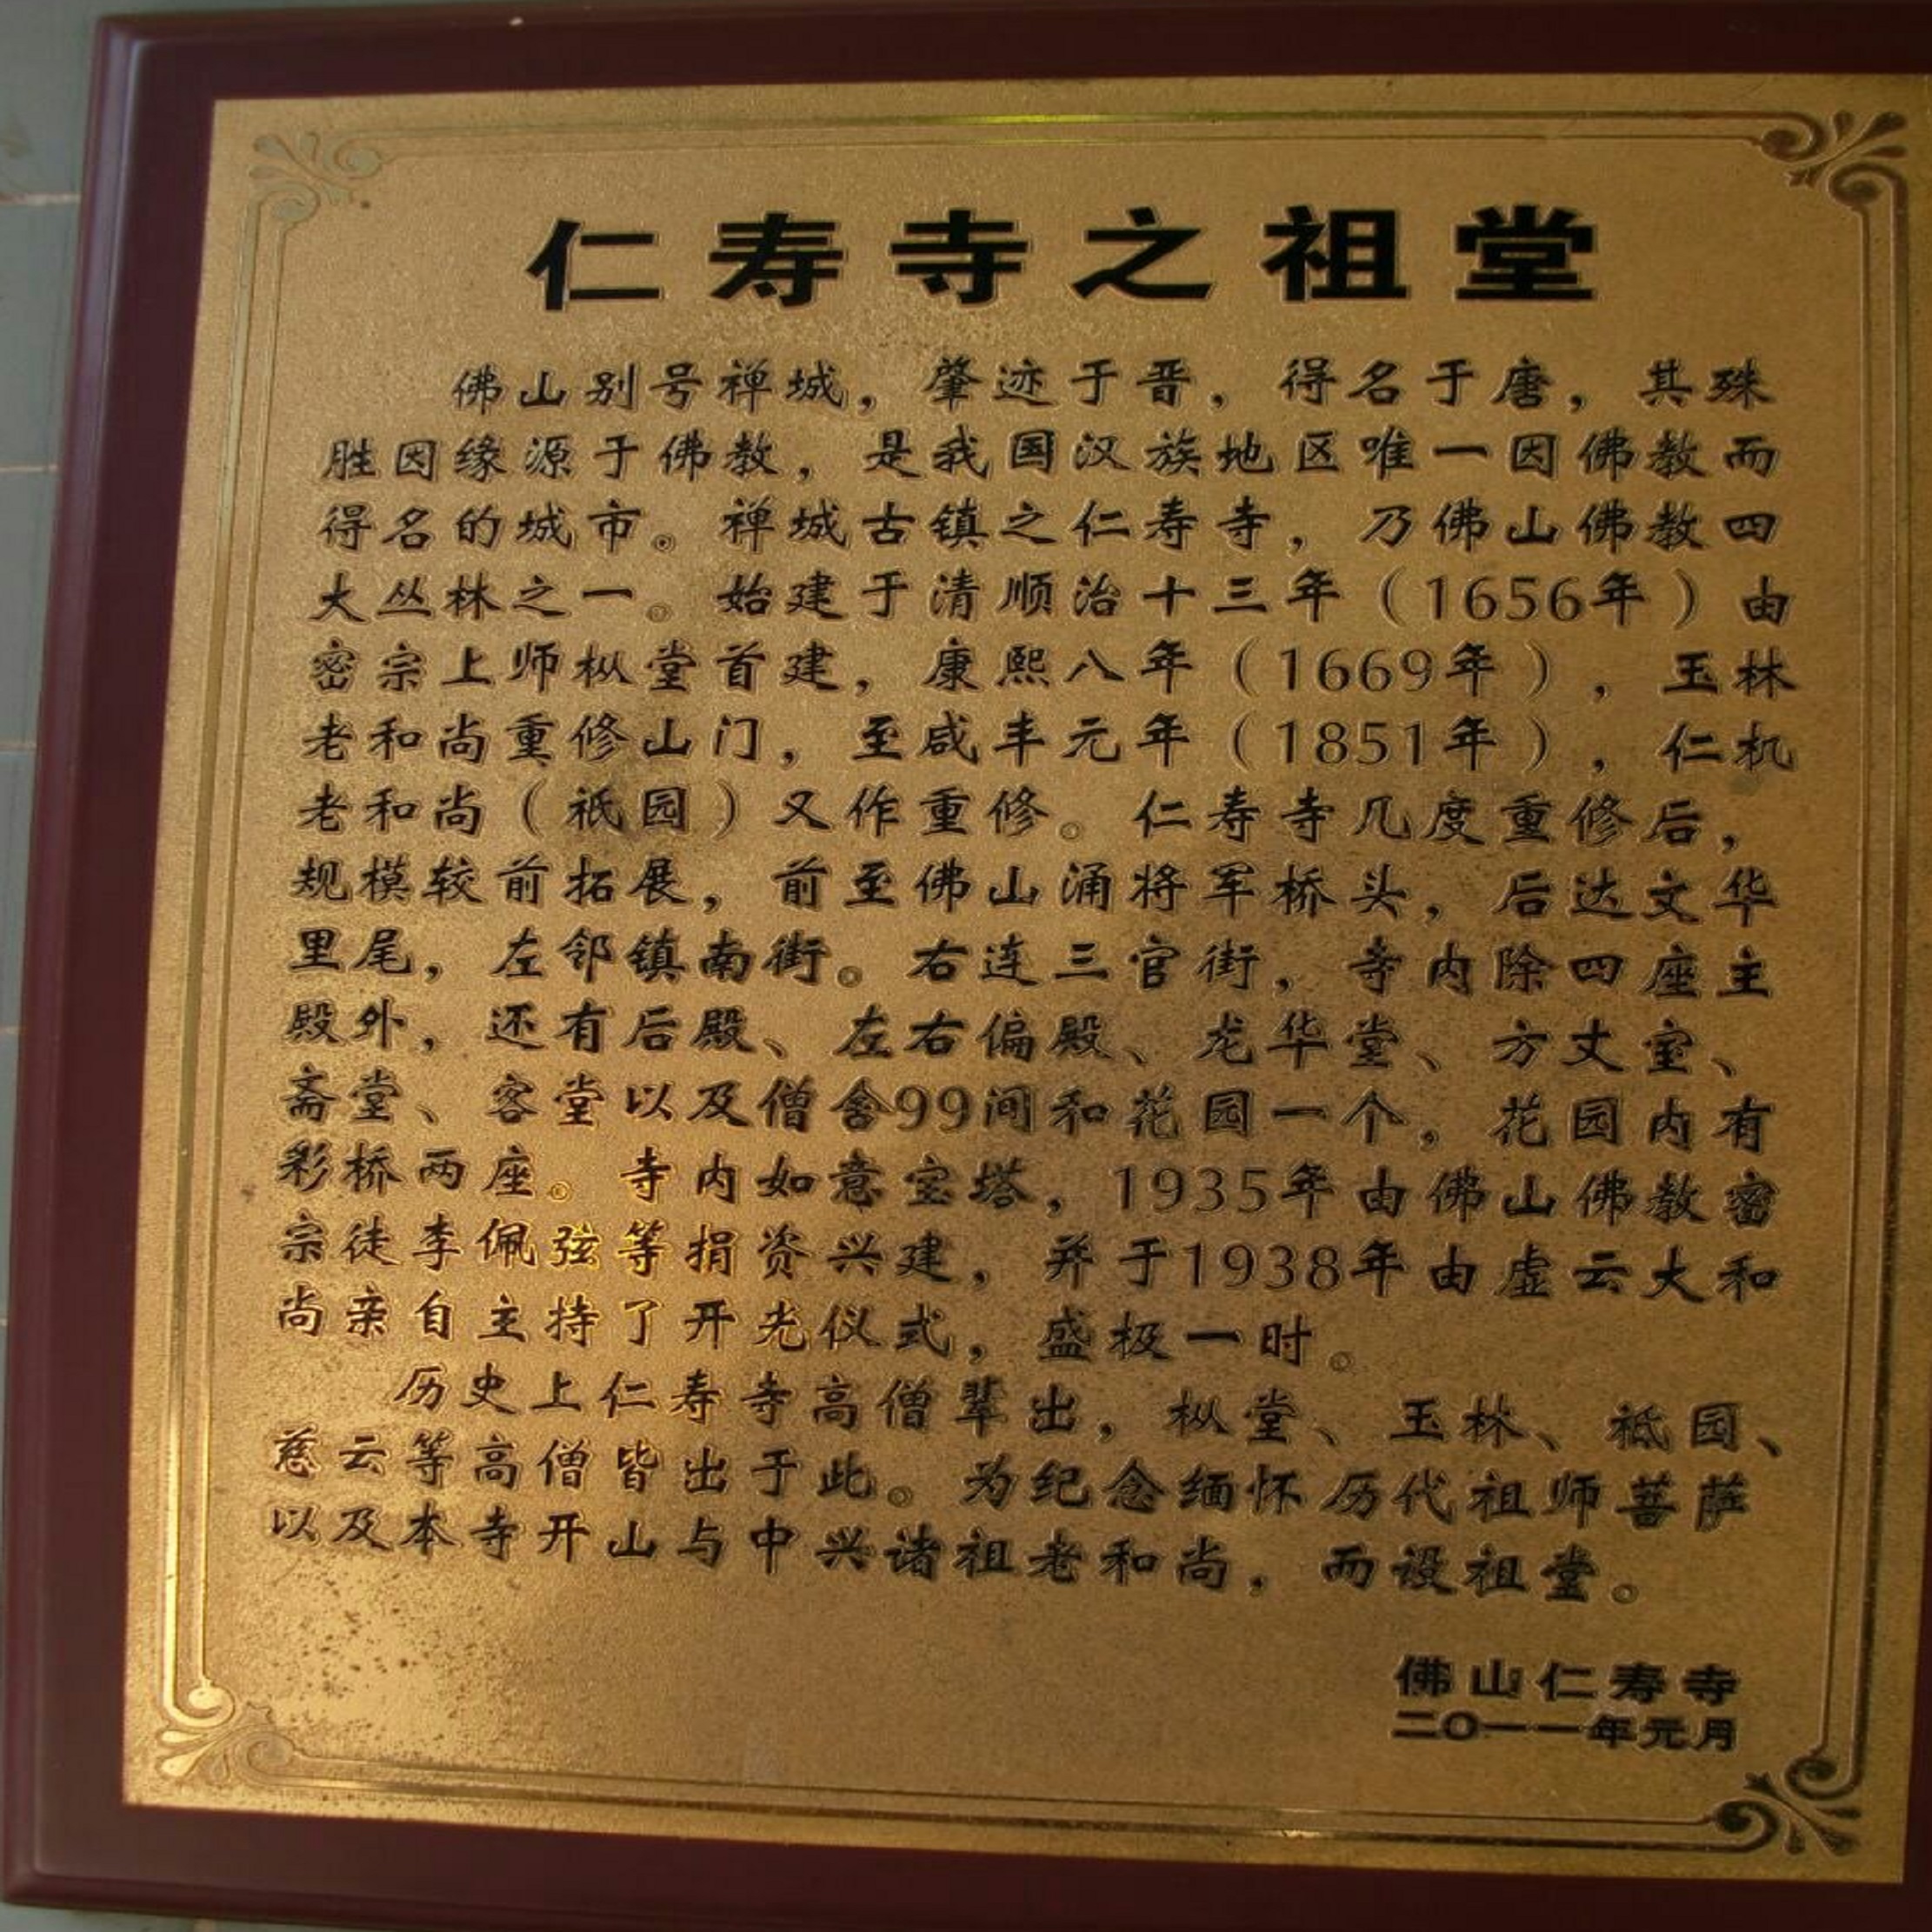 仁寿寺之祖堂
佛山别号禅城，肇迹于晋，得名于唐，其殊
胜因缘源于佛教，是我国汉族地区唯一因佛教而
得名的城市。禅城古镇之仁寿寺，乃佛山佛教四
大丛林之一。始建于清顺治十三年（1656年）由
密宗上师枞堂首建，康熙八年（1669年），玉林
老和尚重修山门，至咸丰元年（1851年），仁机
老和尚（祇园）又作重修。仁寿寺几度重修后，
规模较前拓展，前至佛山涌将军桥头，后达文华
里尾，左邻镇南街。右连三官街，寺内除四座主
殿外，还有后殿、左右偏殿、龙华堂、方丈室、
斋堂、客堂以及僧舍99间和花园一个，花园内有
彩桥两座。寺内如意宝塔，1935年由佛山佛教密
宗徒李佩弦等捐资兴建，并于1938年由虚云大和
尚亲自主持了开光仪式，盛极一时。
历史上仁寿寺高僧辈出，枞堂、玉林、祗园、
慈云等高僧皆出于此。为纪念缅怀历代祖师菩萨
以及本寺开山与中兴诸祖老和尚，而设祖堂。
佛山仁寿寺
二〇一一年元月